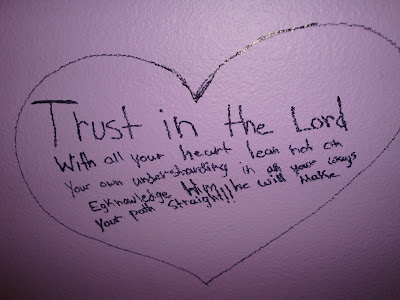 Trust in the Lord
With all your heart lean not on
Your own understanding in all your ways
Egknowledge Him he will Make
Your path straight!!